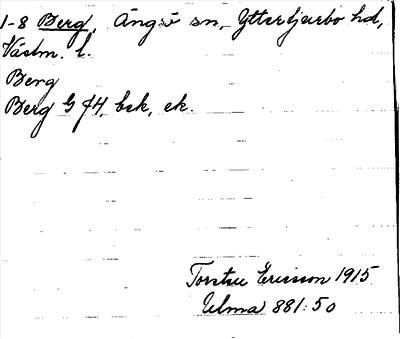 1-8 Berg, Ängsö sn, Yttertjurbo hd,
Västm. l.
Berg
Berg G J4, bsk, ek.
Torsten Ericsson 1915
Ulma 881:50